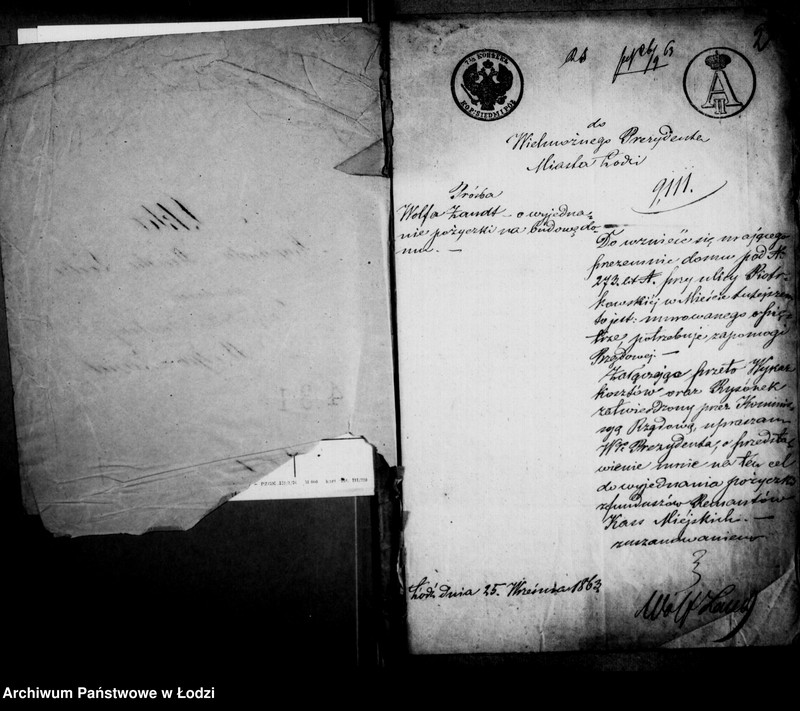 2
7½ КОПѢЕКЪ
KOP. SIEDM I PÓŁ
do
Wielmożnego Prezydenta
Miasta Łodzi
9,111.
Prośba
Wolfa Zandt – o wyjedna-
nie pożyczki na budowę do-
mu. –
Do wznieść się mającego
przezemnie domu pod N
273. lit A. przy ulicy Piotr-
kowskiéj w Mieście tutejszem
to jest: murowanego o pię-
trze, potrzebuję zapomogi
Rządowej –
Załączając przeto Wykaz
kosztów oraz Rysónek
zatwierdzony przez Kommis-
syą Rządową, upraszam
W Prezydenta, o przedsta-
wienie mnie na ten cel
do wyjednania pożyczki
z funduszów Remanentów
Kass Miejskich. –
z uszanowaniem
Łódź dnia 25. Września 1863
Wolf Zandt
431
Archiwum Państwowe w Łodzi